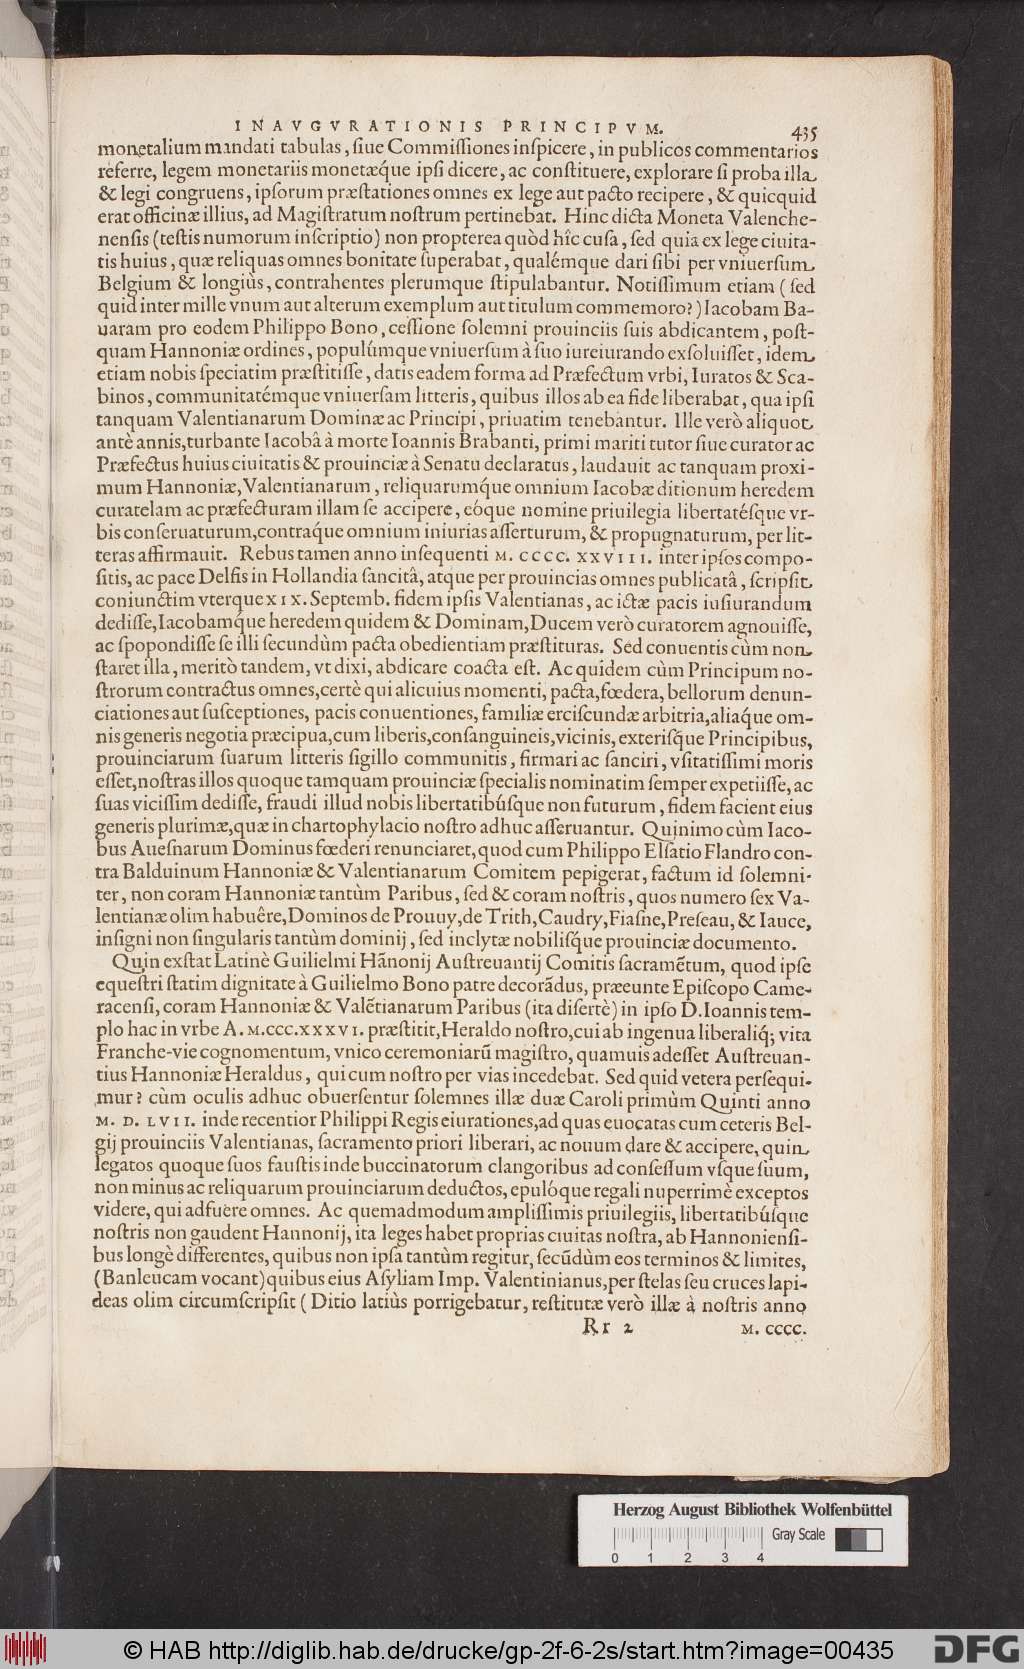 INAVGVRATIONIS PRINCIPVM. 435
monetalium mandati tabulas, ſiue Commiſſiones inſpicere, in publicos commentarios
referre, legem monetariis monetæq́ue ipſi dicere, ac conſtituere, explorare ſi proba illa
& legi congruens, ipſorum præſtationes omnes ex lege aut pacto recipere, & quicquid
erat officinæ illius, ad Magiſtratum noſtrum pertinebat. Hinc dicta Moneta Valenche-
nenſis (teſtis numorum inſcriptio) non propterea quòd hîc cuſa, ſed quia ex lege ciuita-
tis huius, quæ reliquas omnes bonitate ſuperabat, qualémque dari ſibi per vniuerſum
Belgium & longiùs, contrahentes plerumque ſtipulabantur. Notiſſimum etiam (ſed
quid inter mille vnum aut alterum exemplum aut titulum commemoro?) Iacobam Ba-
uaram pro eodem Philippo Bono, ceſſione ſolemni prouinciis ſuis abdicantem, poſt-
quam Hannoniæ ordines, populúmque vniuerſum à ſuo iureiurando exſoluiſſet, idem
etiam nobis ſpeciatim præſtitiſſe, datis eadem forma ad Præfectum vrbi, Iuratos & Sca-
binos, communitatémque vniuerſam litteris, quibus illos ab ea fide liberabat, qua ipſi
tanquam Valentianarum Dominæ ac Principi, priuatim tenebantur. Ille verò aliquot
antè annis, turbante Iacobâ à morte Ioannis Brabanti, primi mariti tutor ſiue curator ac
Præfectus huius ciuitatis & prouinciæ à Senatu declaratus, laudauit ac tanquam proxi-
mum Hannoniæ, Valentianarum, reliquarumq́ue omnium Iacobæ ditionum heredem
curatelam ac præfecturam illam ſe accipere, eóque nomine priuilegia libertatéſque vr-
bis conſeruaturum, contraq́ue omnium iniurias aſſerturum, & propugnaturum, per lit-
teras affirmauit. Rebus tamen anno inſequenti M. CCCC. XXVIII. inter ipſos compo-
ſitis, ac pace Delfis in Hollandia ſancitâ, atque per prouincias omnes publicatâ, ſcripſit
coniunctim vterque XIX. Septemb. fidem ipſis Valentianas, ac ictæ pacis iuſiurandum
dediſſe, Iacobamq́ue heredem quidem & Dominam, Ducem verò curatorem agnouiſſe,
ac ſpopondiſſe ſe illi ſecundùm pacta obedientiam præſtituras. Sed conuentis cùm non
ſtaret illa, meritò tandem, vt dixi, abdicare coacta eſt. Ac quidem cùm Principum no-
ſtrorum contractus omnes, certè qui alicuius momenti, pacta, fœdera, bellorum denun-
ciationes aut ſuſceptiones, pacis conuentiones, familiæ erciſcundæ arbitria, aliaq́ue om-
nis generis negotia præcipua, cum liberis, conſanguineis, vicinis, exteriſq́ue Principibus,
prouinciarum ſuarum litteris ſigillo communitis, firmari ac ſanciri, vſitatiſſimi moris
eſſet, noſtras illos quoque tamquam prouinciæ ſpecialis nominatim ſemper expetiiſſe, ac
ſuas viciſſim dediſſe, fraudi illud nobis libertatibúſque non futurum, fidem facient eius
generis plurimæ, quæ in chartophylacio noſtro adhuc aſſeruantur. Quinimo cùm Iaco-
bus Aueſnarum Dominus fœderi renunciaret, quod cum Philippo Elſatio Flandro con-
tra Balduinum Hannoniæ & Valentianarum Comitem pepigerat, factum id ſolemni-
ter, non coram Hannoniæ tantùm Paribus, ſed & coram noſtris, quos numero ſex Va-
lentianæ olim habuêre, Dominos de Prouuy, de Trith, Caudry, Fiaſne, Preſeau, & Iauce,
inſigni non ſingularis tantùm dominij, ſed inclytæ nobiliſq́ue prouinciæ documento.
Quin exſtat Latinè Guilielmi Hãnonij Auſtreuantij Comitis ſacramẽtum, quod ipſe
equeſtri ſtatim dignitate à Guilielmo Bono patre decorãdus, præeunte Epiſcopo Came-
racenſi, coram Hannoniæ & Valẽtianarum Paribus (ita diſertè) in ipſo D. Ioannis tem-
plo hac in vrbe A. M.CCC.XXXVI. præſtitit, Heraldo noſtro, cui ab ingenua liberaliq́; vita
Franche-vie cognomentum, vnico ceremoniarũ magiſtro, quamuis adeſſet Auſtreuan-
tius Hannoniæ Heraldus, qui cum noſtro per vias incedebat. Sed quid vetera perſequi-
mur? cùm oculis adhuc obuerſentur ſolemnes illæ duæ Caroli primùm Quinti anno
M. D. LVII. inde recentior Philippi Regis eiurationes, ad quas euocatas cum ceteris Bel-
gij prouinciis Valentianas, ſacramento priori liberari, ac nouum dare & accipere, quin
legatos quoque ſuos fauſtis inde buccinatorum clangoribus ad conſeſſum vſque ſuum,
non minus ac reliquarum prouinciarum deductos, epulóque regali nuperrimè exceptos
videre, qui adfuêre omnes. Ac quemadmodum ampliſſimis priuilegiis, libertatibúſque
noſtris non gaudent Hannonij, ita leges habet proprias ciuitas noſtra, ab Hannonienſi-
bus longè differentes, quibus non ipſa tantùm regitur, ſecũdùm eos terminos & limites,
(Banleucam vocant) quibus eius Aſyliam Imp. Valentinianus, per ſtelas ſeu cruces lapi-
deas olim circumſcripſit (Ditio latiùs porrigebatur, reſtitutæ verò illæ à noſtris anno
Rr 2 M. CCCC.
Herzog August Bibliothek Wolfenbüttel
Gray Scale
0 1 2 3 4
© HAB http://diglib.hab.de/drucke/gp-2f-6-2s/start.htm?image=00435
DFG